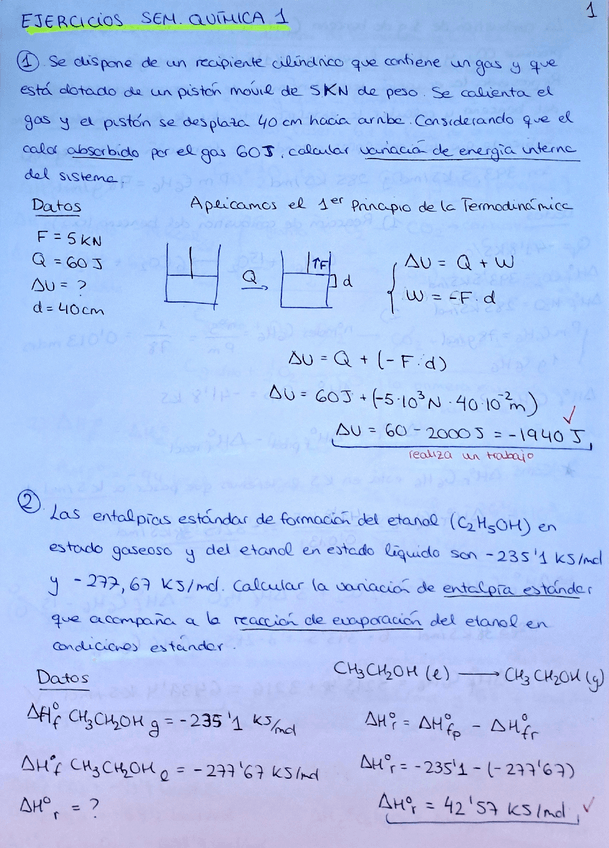 EJERCICIOS SEM. QUÍMICA 1
1
① Se dispone de un recipiente cilíndrico que contiene un gas y que
está dotado de un pistón móvil de 5KN de peso. Se calienta el
gas y el pistón se desplaza 40 cm hacia arriba. Considerando que el
calor absorbido por el gas 60J, calcular variación de energía interna
del sistema.
Datos
Aplicamos el 1er Principio de la Termodinámica
F = 5 KN
Q = 60 J
ΔU = ?
d = 40 cm
Q
↑F
d
ΔU = Q + W
W = -F · d
ΔU = Q + (-F · d)
ΔU = 60J + (-5·10³N · 40·10⁻²m)
ΔU = 60 - 2000J = -1940 J ✓
realiza un trabajo
② Las entalpías estándar de formación del etanol (C₂H₅OH) en
estado gaseoso y del etanol en estado líquido son -235'1 KJ/mol
y -277,67 KJ/mol. Calcular la variación de entalpía estándar
que acompaña a la reacción de evaporación del etanol en
condiciones estándar.
Datos
CH₃CH₂OH (l) ⟶ CH₃CH₂OH (g)
ΔH°f CH₃CH₂OH g = -235'1 KJ/mol
ΔH°r = ΔH°fp - ΔH°fr
ΔH°f CH₃CH₂OH l = -277'67 KJ/mol
ΔH°r = -235'1 - (-277'67)
ΔH°r = ?
ΔH°r = 42'57 KJ/mol ✓